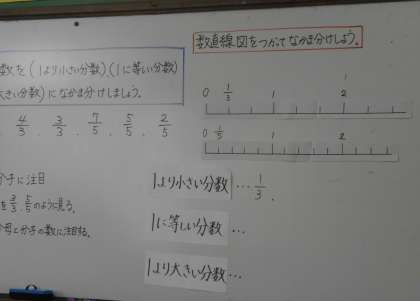 数直線図をつかってなかま分けしよう。
数を(1より小さい分数)(1に等しい分数)
大きい分数)になかま分けしましょう。
4/3 、 3/3 、 7/5 、 5/5 、 2/5
分子に注目
を3/3、5/5のように見る。
分母と分子の数に注目する。
0 1/3 1 2
0 1/5 1 2
1より小さい分数…1/3、
1に等しい分数…
1より大きい分数…